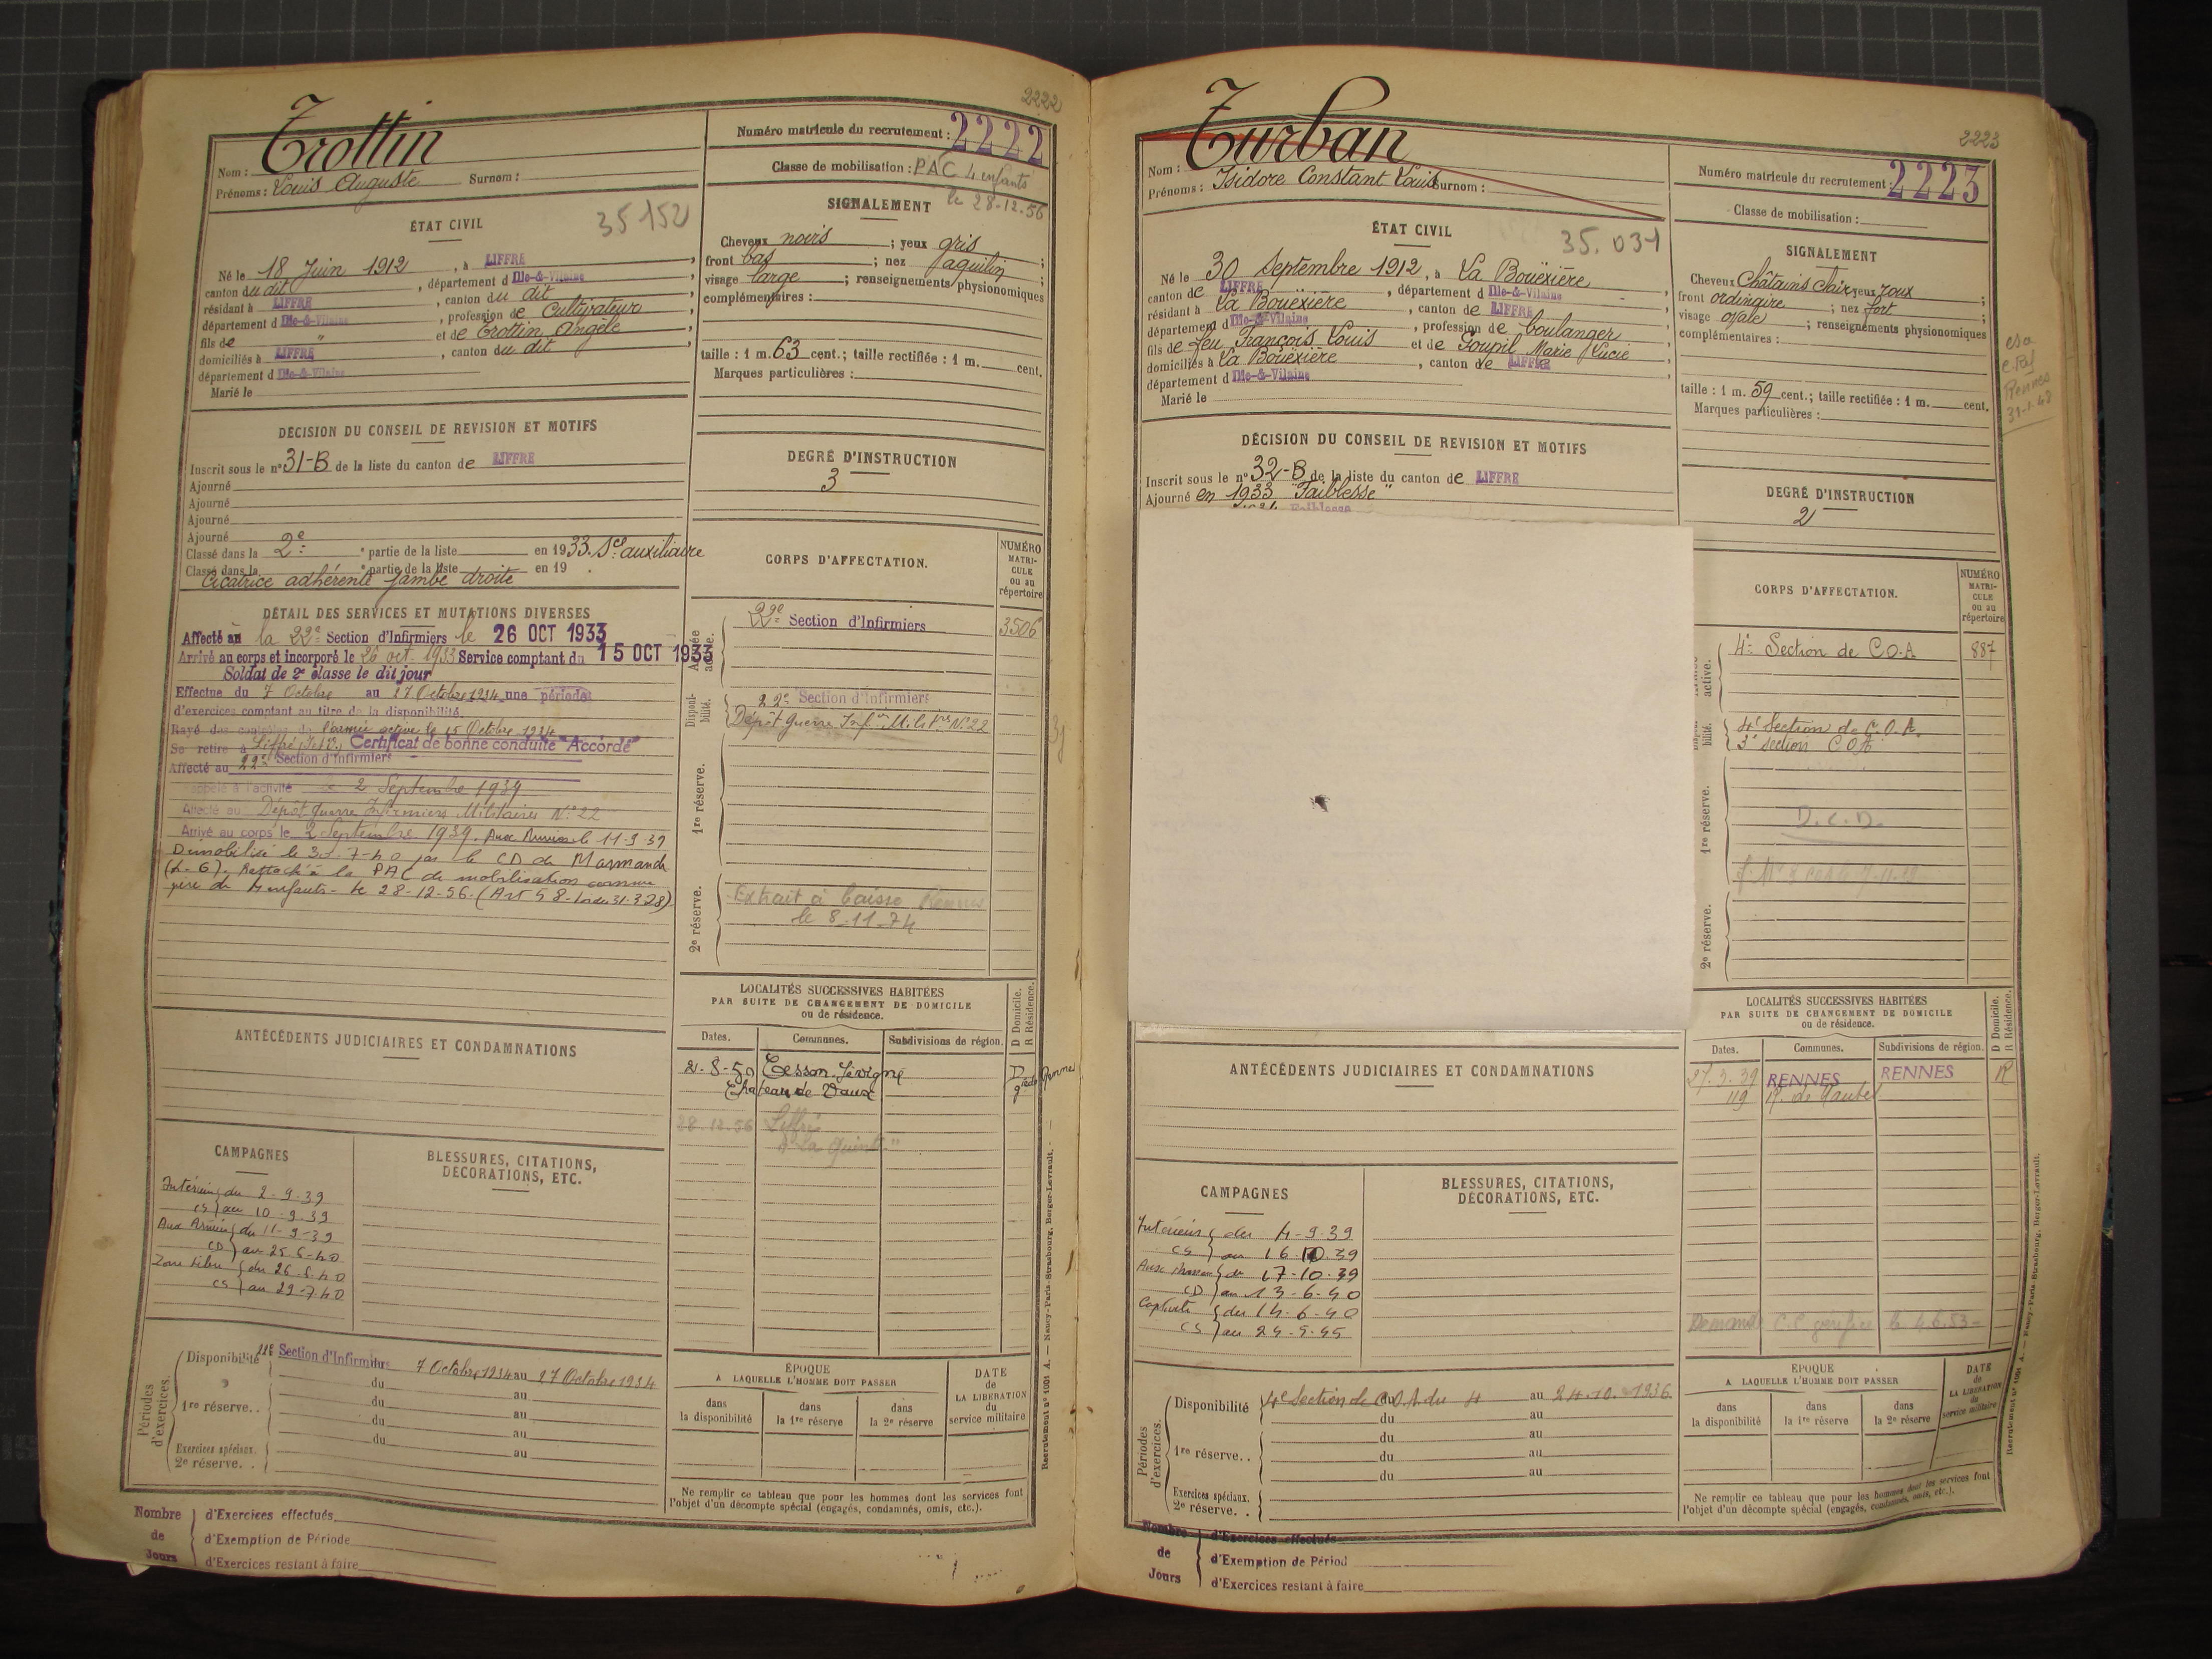 2222
Trottin
Nom :
Prénoms : Louis Auguste Surnom :
Numéro matricule du recrutement : 2222
Classe de mobilisation : PAC 4 enfants
le 28-12-56
ÉTAT CIVIL
35 152
Né le 18 Juin 1912, à LIFFRÉ,
canton du dit, département d Ille-&-Vilaine,
résidant à LIFFRÉ, canton du dit,
département d Ille-&-Vilaine, profession de Cultivateur,
fils de " et de Trottin Angèle,
domiciliés à LIFFRÉ, canton du dit,
département d Ille-&-Vilaine
Marié le
SIGNALEMENT
Cheveux noirs ; yeux gris ;
front bas ; nez aquilin ;
visage large ; renseignements physionomiques
complémentaires :
taille : 1 m. 63 cent.; taille rectifiée : 1 m. cent.
Marques particulières :
DÉCISION DU CONSEIL DE REVISION ET MOTIFS
Inscrit sous le n° 31-B de la liste du canton de LIFFRÉ
Ajourné
Ajourné
Ajourné
Ajourné
Classé dans la 2e partie de la liste en 1933. Sce auxiliaire
Classé dans la partie de la liste en 19 .
Cicatrice adhérente jambe droite
DEGRÉ D'INSTRUCTION
3
DÉTAIL DES SERVICES ET MUTATIONS DIVERSES
Affecté au la 22e Section d'Infirmiers le 26 OCT 1933
Arrivé au corps et incorporé le 26 oct. 1933 Service comptant du 15 OCT 1933
Soldat de 2e classe le dit jour
Effectue du 7 Octobre au 27 Octobre 1934 une période
d'exercices comptant au titre de la disponibilité.
Rayé des contrôles de l'armée active le 15 Octobre 1934
Se retire à Liffré (I.&V.) Certificat de bonne conduite "Accordé"
Affecté au 22e Section d'Infirmiers
Rappelé à l'activité le 2 Septembre 1939
Affecté au Dépôt Guerre Infirmiers Militaires N° 22
Arrivé au corps le 2 Septembre 1939. Aux Armées le 11-9-39
Démobilisé le 30-7-40 par le CD de Marmande
(L-G). Rattaché à la PAC de mobilisation comme
père de 4 enfants - le 28-12-56. (Art 58 - Loi du 31-3-28)
CORPS D'AFFECTATION.
NUMÉRO
MATRI-
CULE
ou au
répertoire
Armée
active.
22e Section d'Infirmiers 3506
Disponi-
bilité.
22e Section d'Infirmiers
Dépôt Guerre Infirs Milires N° 22
1re réserve.
2e réserve.
Extrait à Caisse Rennes
le 8-11-74
LOCALITÉS SUCCESSIVES HABITÉES
PAR SUITE DE CHANGEMENT DE DOMICILE
ou de résidence.
D Domicile.
R Résidence.
Dates. Communes. Subdivisions de région.
2-8-50 Cesson-Sévigné D
Château de Vaux
28-12-56 Liffré
ANTÉCÉDENTS JUDICIAIRES ET CONDAMNATIONS
CAMPAGNES
Intérieur du 2-9-39
CS au 10-9-39
Aux Armées du 11-9-39
CD au 25-6-40
Zone libre du 26-6-40
CS au 29-7-40
BLESSURES, CITATIONS,
DÉCORATIONS, ETC.
Périodes
d'exercices.
Disponibilité 22e Section d'Infirmiers 7 Octobre 1934 au 27 Octobre 1934
du au
1re réserve. . du au
du au
du au
Exercices spéciaux.
2e réserve. .
ÉPOQUE
A LAQUELLE L'HOMME DOIT PASSER
dans
la disponibilité
dans
la 1re réserve
dans
la 2e réserve
DATE
de
LA LIBÉRATION
du
service militaire
Ne remplir ce tableau que pour les hommes dont les services font
l'objet d'un décompte spécial (engagés, condamnés, omis, etc.).
Recrutement n° 1001 A. — Nancy-Paris-Strasbourg, Berger-Levrault.
Nombre
de
Jours
d'Exercices effectués
d'Exemption de Période
d'Exercices restant à faire
2223
Turban
Nom :
Prénoms : Isidore Constant Louis Surnom :
Numéro matricule du recrutement : 2223
Classe de mobilisation :
ÉTAT CIVIL
35.031
Né le 30 Septembre 1912, à La Bouëxière,
canton de LIFFRÉ, département d Ille-&-Vilaine,
résidant à La Bouëxière, canton de LIFFRÉ,
département d Ille-&-Vilaine, profession de boulanger,
fils de feu François Louis et de Goupil Marie Lucie,
domiciliés à La Bouëxière, canton de LIFFRÉ,
département d Ille-&-Vilaine
Marié le
SIGNALEMENT
Cheveux Châtains clair yeux roux ;
front ordinaire ; nez fort ;
visage ovale ; renseignements physionomiques
complémentaires :
taille : 1 m. 59 cent.; taille rectifiée : 1 m. cent.
Marques particulières :
Rennes
31-1-48
DÉCISION DU CONSEIL DE REVISION ET MOTIFS
Inscrit sous le n° 32-B de la liste du canton de LIFFRÉ
Ajourné en 1933 "Faiblesse"
DEGRÉ D'INSTRUCTION
2
CORPS D'AFFECTATION.
NUMÉRO
MATRI-
CULE
ou au
répertoire
active.
4e Section de C.O.A 887
bilité.
4e Section de C.O.A.
3e Section C.O.A
1re réserve.
D.C.D.
2e réserve.
LOCALITÉS SUCCESSIVES HABITÉES
PAR SUITE DE CHANGEMENT DE DOMICILE
ou de résidence.
D Domicile.
R Résidence.
Dates. Communes. Subdivisions de région.
27.3.39 RENNES RENNES R
119 R. de Nantes
ANTÉCÉDENTS JUDICIAIRES ET CONDAMNATIONS
CAMPAGNES
Intérieur du 4-9-39
CS au 16.10.39
Aux Armées du 17-10-39
CD au 13-6-40
Captivité du 14-6-40
CS au 24-5-45
BLESSURES, CITATIONS,
DÉCORATIONS, ETC.
Périodes
d'exercices.
Disponibilité 4e Section de C.O.A. du 4 au 24.10.1936
du au
du au
1re réserve. . du au
du au
Exercices spéciaux.
2e réserve. .
ÉPOQUE
A LAQUELLE L'HOMME DOIT PASSER
dans
la disponibilité
dans
la 1re réserve
dans
la 2e réserve
DATE
de
LA LIBÉRATION
du
service militaire
Ne remplir ce tableau que pour les hommes dont les services font
l'objet d'un décompte spécial (engagés, condamnés, omis, etc.).
Recrutement n° 1001 A. — Nancy-Paris-Strasbourg, Berger-Levrault.
Nombre
de
Jours
d'Exercices effectués
d'Exemption de Périod
d'Exercices restant à faire